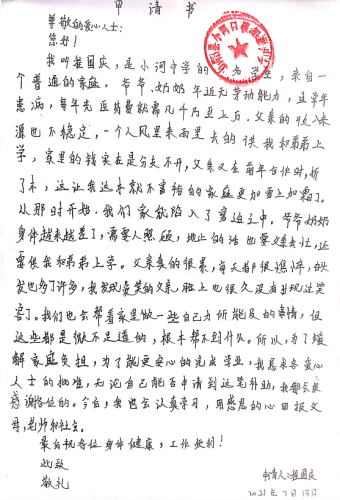 申请书
尊敬的爱心人士:
您好!
我叫 国庆,是小河中学的 为学生,来自一
个普通的家庭。爷爷、奶奶年近无劳动能力,且常年
患病,每年光医药费就需几千乃至上万。父亲的收入来
源也不稳定,一个人风里来雨里去的供我和弟弟上
学,家里的钱实在是分文不开,父亲又在前年合作时,折
了本,这让我这本就不富裕的家庭更加雪上加霜了。
从那时开始,我们家就陷入了窘迫之中。爷爷奶奶
身体越来越差了,需要人照顾,地上的活也要父亲去忙,还
要供我和弟弟上学。父亲真的很累,每天都很憔悴,白头
发也多了许多,我发现爱笑的父亲,脸上也很久没有出现过笑
容了。我们也会帮着家里做一些自己力所能及的事情,但
这些都是微不足道的,根本帮不到什么。所以,为了缓
解家庭负担,为了能更安心的完成学业,我恳求各爱心
人士的批准,无论自己能否申请到这笔补助,我都会很
感谢各位的。今后,我也会认真学习,用感恩的心回报父
母,老师和社会。
最后祝各位身体健康,工作顺利!
此致
敬礼
申请人: 国庆
2021年7月13日